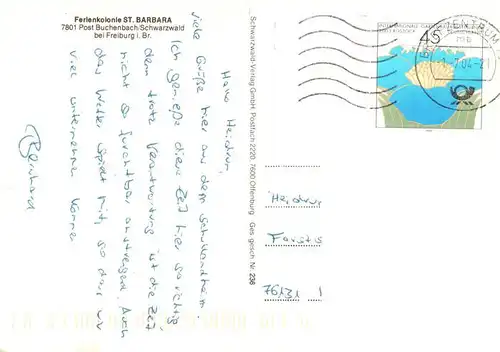 Ferienkolonie ST. BARBARA
7801 Post Buchenbach/Schwarzwald
bei Freiburg i. Br.
Hallo Heidrun,
viele Grüße hier aus dem Schwarzwald.
Ich genieße diese Zeit hier so richtig
denn trotz Verantwortung ist die Zeit
nicht so furchtbar anstrengend. Auch
das Wetter spielt mit, so daß wir
viel unternehmen können
Bernhard
Schwarzwald-Verlag GmbH, Postfach 2220, 7600 Offenburg Ges. gesch. Nr. 236
45
ZENTRUM
.7.04-21
Heidrun
76131